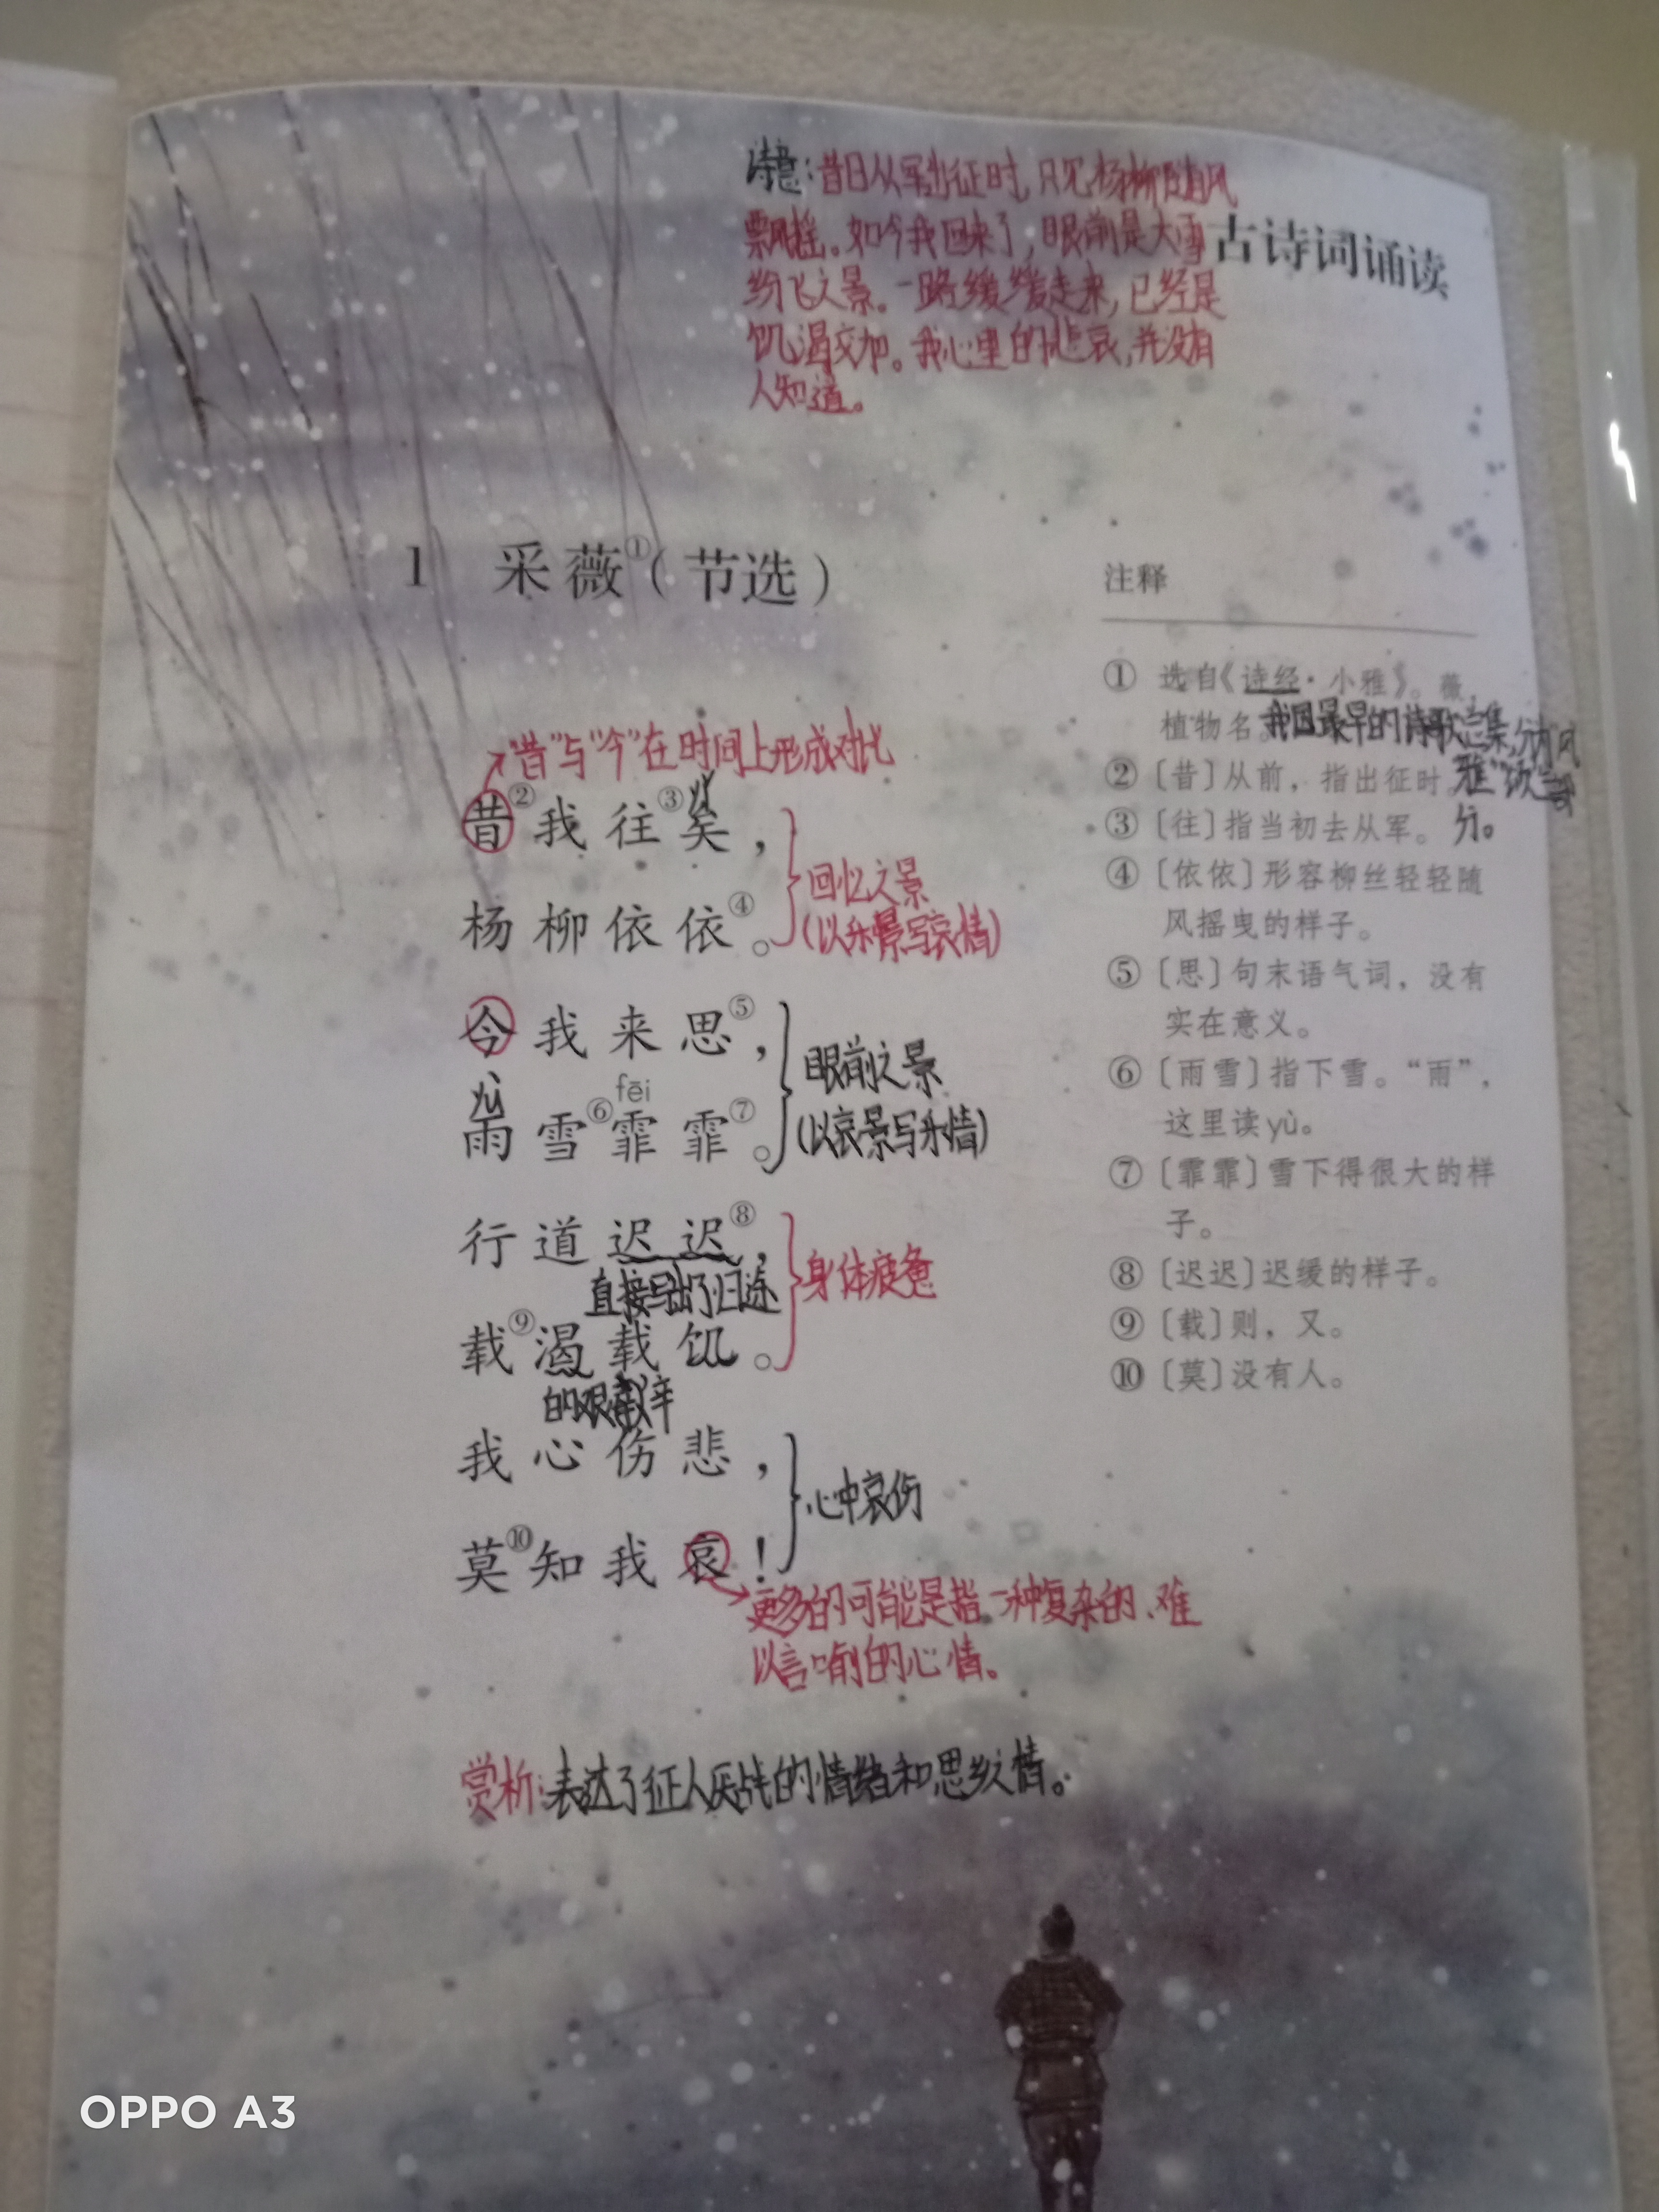 诗意：昔日从军出征时，只见杨柳随风
飘摇。如今我回来了，眼前是大雪
纷飞之景。一路缓缓走来，已经是
饥渴交加。我心里的悲哀，并没有
人知道。
古诗词诵读
1 采薇①（节选）
“昔”与“今”在时间上形成对比
yǐ
昔②我往③矣，
杨柳依依④。
回忆之景
（以乐景写哀情）
今我来思⑤，
yù fēi
雨雪⑥霏霏⑦。
眼前之景
（以哀景写乐情）
行道迟迟⑧，
直接写出了归途
载⑨渴载饥。
的艰辛
身体疲惫
我心伤悲，
莫⑩知我哀！
心中哀伤
更多的可能是指一种复杂的、难
以言喻的心情。
赏析：表达了征人厌战的情绪和思乡之情。
注释
① 选自《诗经·小雅》。薇，
植物名。我国最早的诗歌总集，分为风
② 〔昔〕从前，指出征时。雅”“颂”三部
③ 〔往〕指当初去从军。 分。
④ 〔依依〕形容柳丝轻轻随
风摇曳的样子。
⑤ 〔思〕句末语气词，没有
实在意义。
⑥ 〔雨雪〕指下雪。“雨”，
这里读yù。
⑦ 〔霏霏〕雪下得很大的样
子。
⑧ 〔迟迟〕迟缓的样子。
⑨ 〔载〕则，又。
⑩ 〔莫〕没有人。
OPPO A3